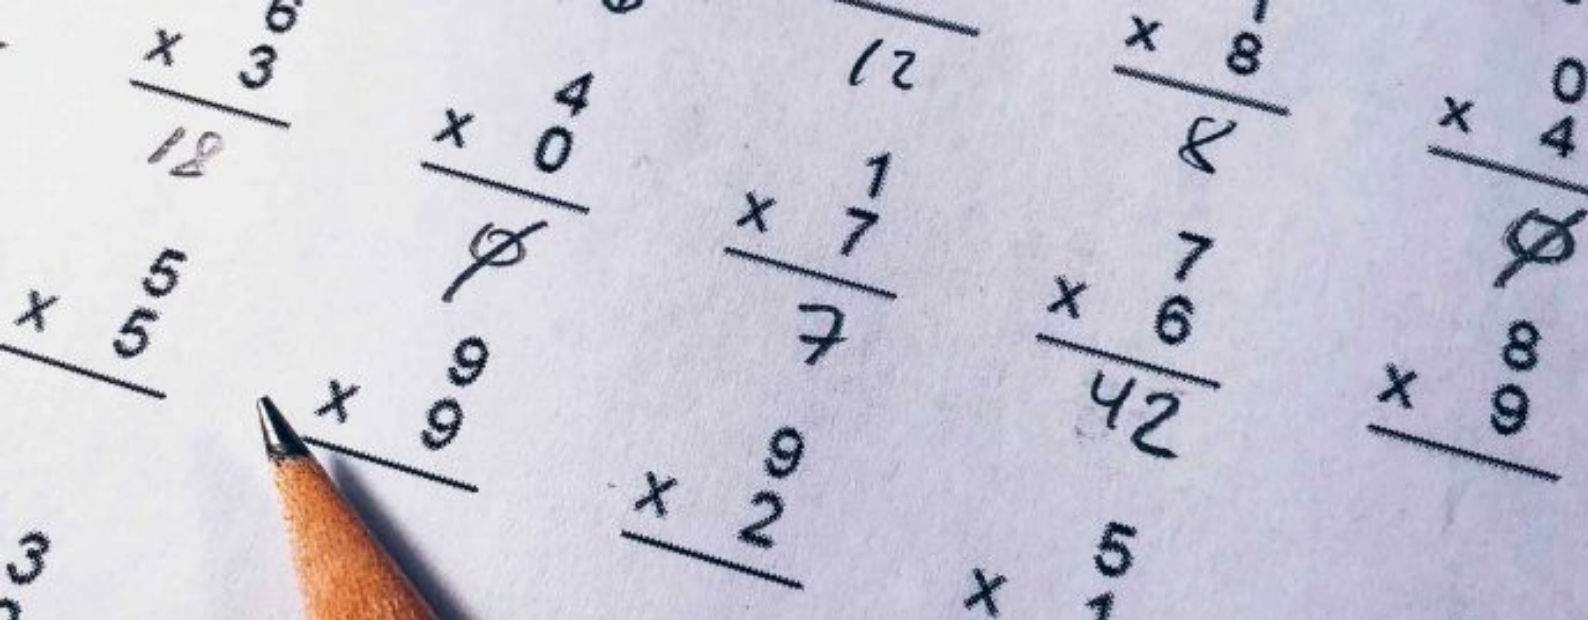 6
x 3
18
4
x 0
0
12
x 8
8
0
x 4
0
5
x 5
9
x 9
1
x 7
7
7
x 6
42
8
x 9
9
x 2
5
x
3